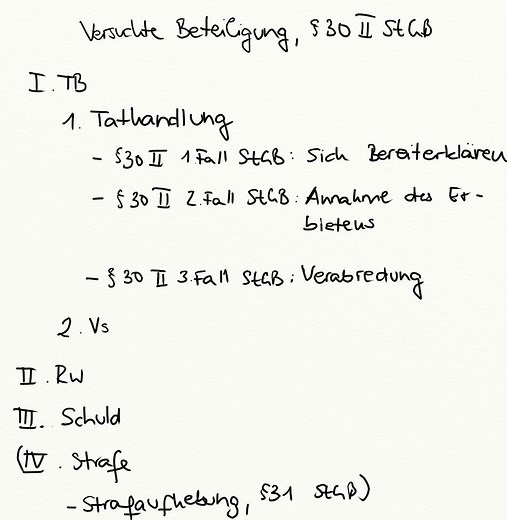 Versuchte Beteiligung, § 30 II StGB
I. TB
1. Tathandlung
- § 30 II 1 Fall StGB: Sich Bereiterklären
- § 30 II 2. Fall StGB: Annahme des Er-
bietens
- § 30 II 3. Fall StGB: Verabredung
2. Vs
II. Rw
III. Schuld
(IV. Strafe
- Strafaufhebung, § 31 StGB)